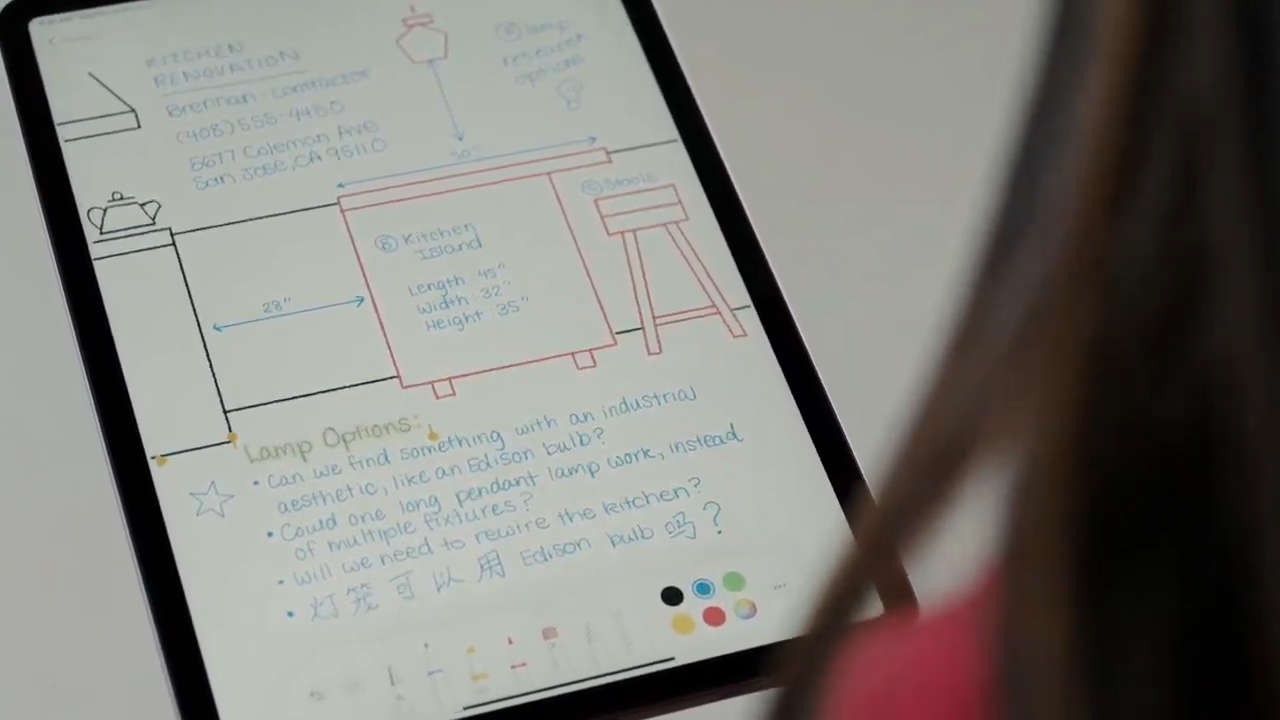 KITCHEN
RENOVATION
Brennan - contractor
(408) 555-4450
5677 Coleman Ave
San Jose, CA 95110
Ⓐ lamp
research
options
50"
Ⓒ Stools
Ⓑ Kitchen
Island
Length : 45"
Width : 32"
Height : 35"
28"
Lamp Options:
• Can we find something with an industrial
aesthetic, like an Edison bulb?
• Could one long pendant lamp work, instead
of multiple fixtures?
• Will we need to rewire the kitchen?
• 灯笼可以用 Edison bulb 吗?